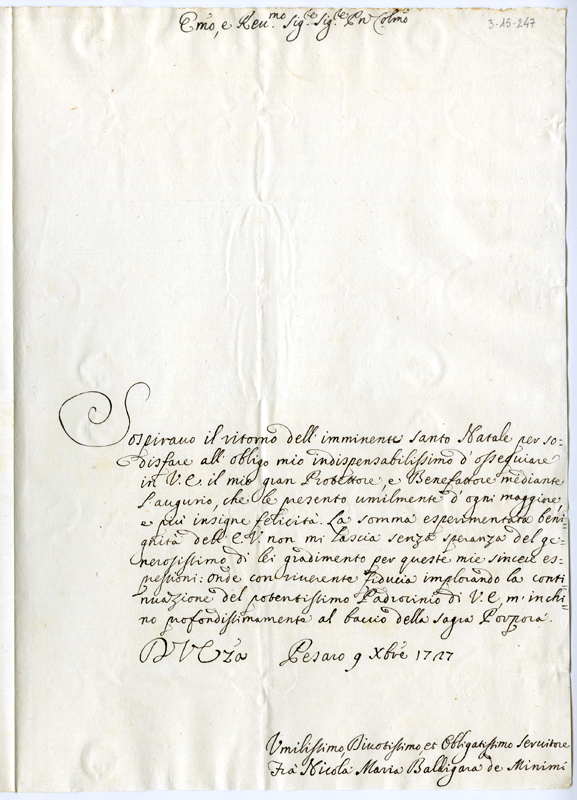 Emo, e Reu.mo Sig.re Sig.re Pn Colmo
3-15-247
Sospirauo il ritorno dell'imminente santo Natale per so=
disfare all'obligo mio indispensabilissimo d'ossequiare
in V.E. il mio gran Protettore, e Benefattore mediante
l'augurio, che le presento umilmente d'ogni maggiore,
e più insigne felicità. La somma esperimentata beni=
gnità dell'E.V. non mi lascia senza speranza del ge=
nerosissimo di lei gradimento per queste mie sincere es=
pressioni: onde con riuerente fiducia implorando la conti=
nuazione del potentissimo Padrocinio di V.E, m'inchi=
no profondissimamente al baccio della sagra Porpora.
D V Eza Pesaro 9 Xbre 1727
Vmilissimo, Diuotissimo, et Obligatissimo Seruitore
Frà Nicola Maria Baldigara de Minimi